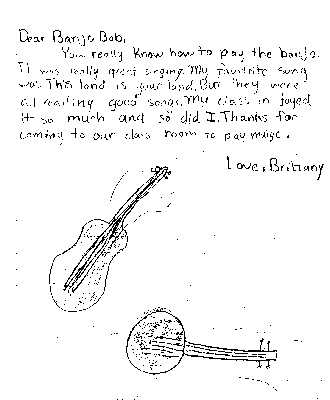 Dear Banjo Bob,
You really know how to pay the banjo.
It was really great singing. My favorite song
was This land is your land. But they were
all realling good songs. My class in joyed
it so much and so did I. Thanks for
coming to our class room to pay muige.
Love, Brittany